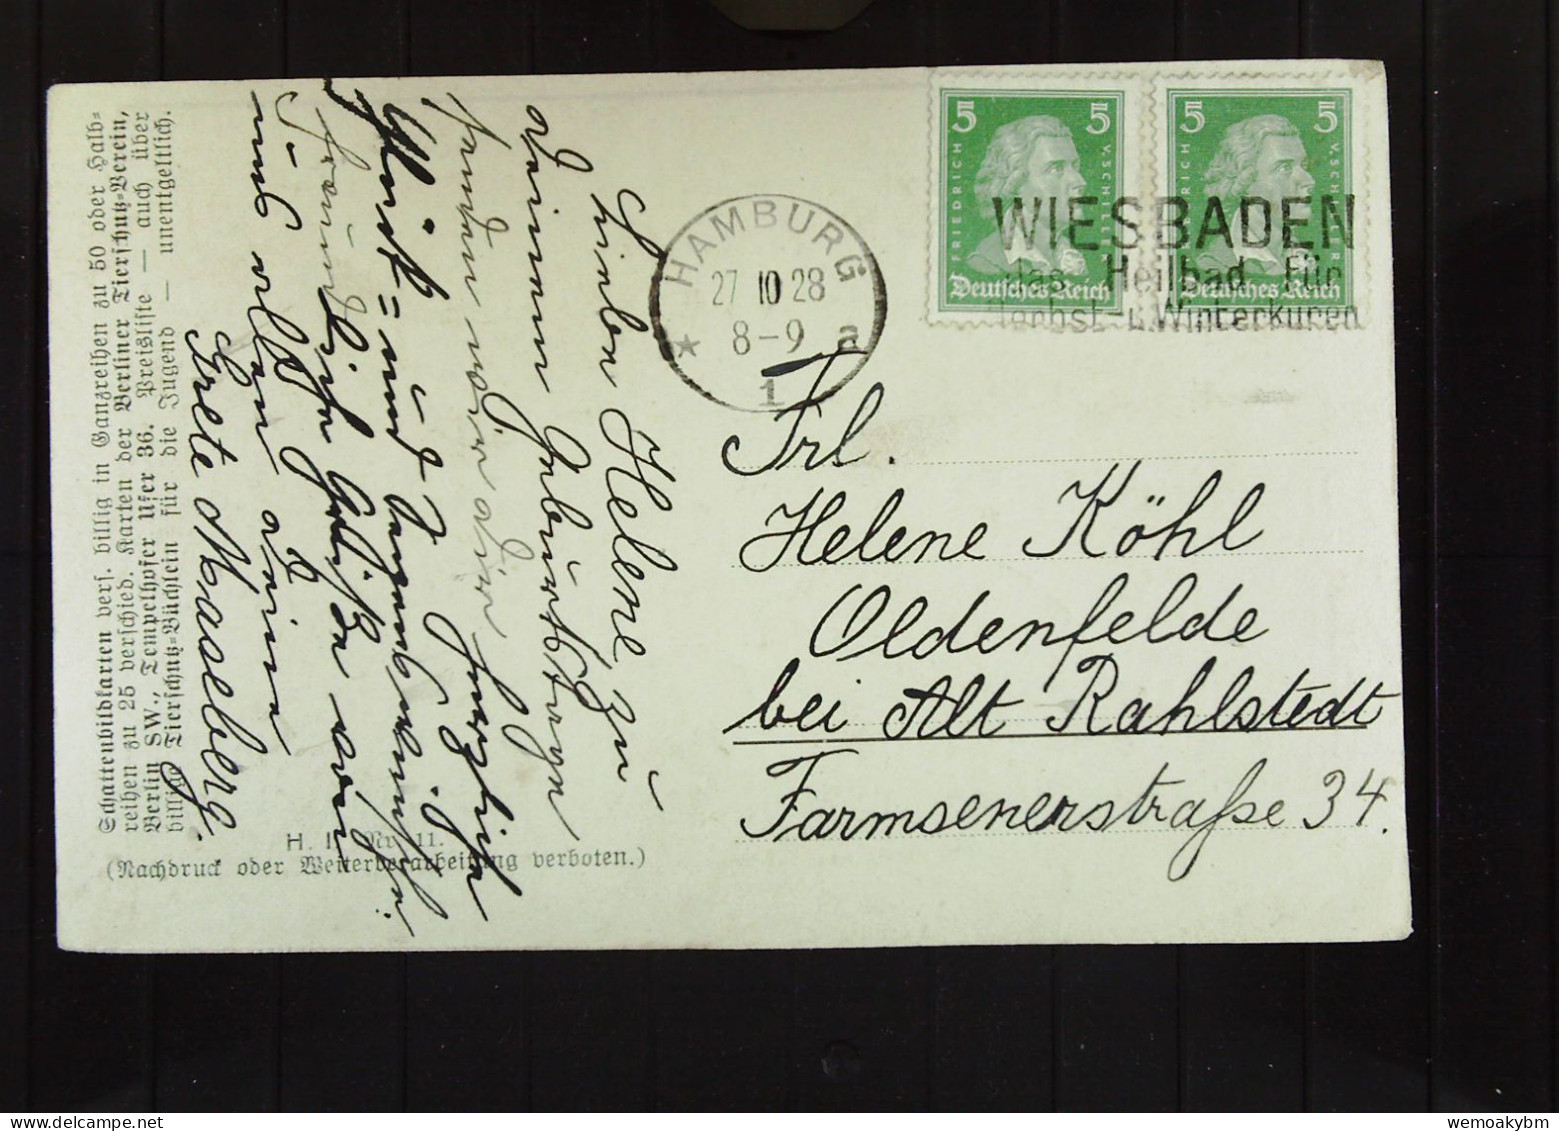 Schattenbildkarten verf. billig in Ganzreihen zu 50 oder Halb-
reihen zu 25 verschied. Karten der Berliner Tierschutz-Verein,
Berlin SW., Tempelhofer Ufer 36. Preisliste — auch über
billige Tierschutz-Büchlein für die Jugend — unentgeltlich.
H. I. Nr. 11.
(Nachdruck oder Weiterverarbeitung verboten.)
Liebe Helene! Zu
Deinem Geburtstage
senden wir dir herzliche
Glück= und Segenswünsche.
und allem deine
Grete Masseberg.
HAMBURG
27 10 28
8-9 a
★ 1
5 5
FRIEDRICH V. SCHILLER
Deutsches Reich
5 5
FRIEDRICH V. SCHILLER
Deutsches Reich
WIESBADEN
das Heilbad für
Herbst- u. Winterkuren
Frl.
Helene Köhl
Oldenfelde
bei Alt Rahlstedt
Farmsenerstraße 34.
wemoakybm